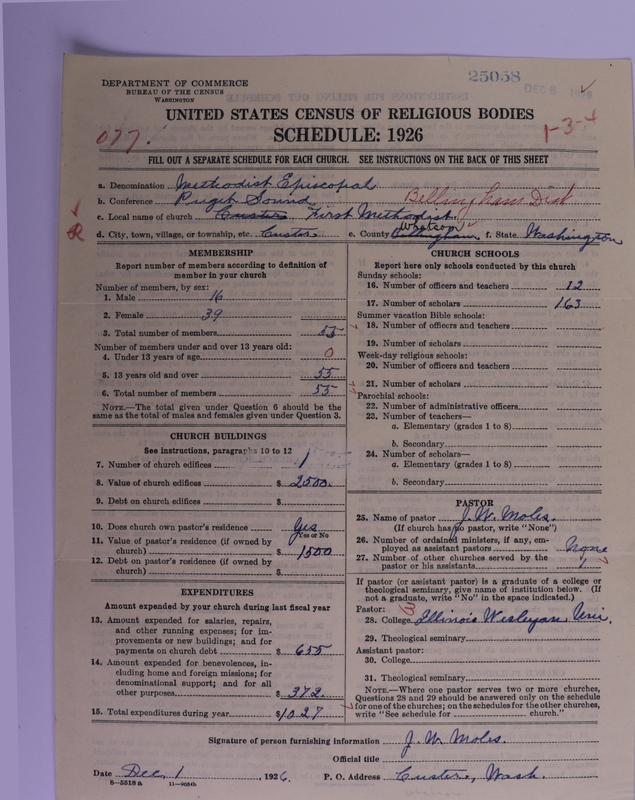 25058
DEC 8 1926
DEPARTMENT OF COMMERCE
BUREAU OF THE CENSUS
WASHINGTON
UNITED STATES CENSUS OF RELIGIOUS BODIES
SCHEDULE: 1926
077.
1-3-4
FILL OUT A SEPARATE SCHEDULE FOR EACH CHURCH. SEE INSTRUCTIONS ON THE BACK OF THIS SHEET
a. Denomination Methodist Episcopal
b. Conference Puget Sound Bellingham Dist
c. Local name of church Custer First Methodist
d. City, town, village, or township, etc. Custer e. County Bellingham Whatcom f. State Washington
MEMBERSHIP
Report number of members according to definition of
member in your church
Number of members, by sex:
1. Male 16
2. Female 39
3. Total number of members 55
Number of members under and over 13 years old:
4. Under 13 years of age 0
5. 13 years old and over 55
6. Total number of members 55
NOTE.—The total given under Question 6 should be the
same as the total of males and females given under Question 3.
CHURCH BUILDINGS
See instructions, paragraphs 10 to 12
7. Number of church edifices 1
8. Value of church edifices $ 2500.
9. Debt on church edifices $
10. Does church own pastor's residence Yes
Yes or No
11. Value of pastor's residence (if owned by
church) $ 1500
12. Debt on pastor's residence (if owned by
church) $
EXPENDITURES
Amount expended by your church during last fiscal year
13. Amount expended for salaries, repairs,
and other running expenses; for im-
provements or new buildings; and for
payments on church debt $ 655
14. Amount expended for benevolences, in-
cluding home and foreign missions; for
denominational support; and for all
other purposes $ 372.
15. Total expenditures during year $ 1027
CHURCH SCHOOLS
Report here only schools conducted by this church
Sunday schools:
16. Number of officers and teachers 12
17. Number of scholars 163
Summer vacation Bible schools:
18. Number of officers and teachers
19. Number of scholars
Week-day religious schools:
20. Number of officers and teachers
21. Number of scholars
Parochial schools:
22. Number of administrative officers
23. Number of teachers—
a. Elementary (grades 1 to 8)
b. Secondary
24. Number of scholars—
a. Elementary (grades 1 to 8)
b. Secondary
PASTOR
25. Name of pastor J. W. Moles.
(If church has no pastor, write "None")
26. Number of ordained ministers, if any, em-
ployed as assistant pastors None
27. Number of other churches served by the
pastor or his assistants 1
If pastor (or assistant pastor) is a graduate of a college or
theological seminary, give name of institution below. (If
not a graduate, write "No" in the space indicated.)
Pastor:
28. College Illinois Wesleyan Uni.
29. Theological seminary
Assistant pastor:
30. College
31. Theological seminary
NOTE.—Where one pastor serves two or more churches,
Questions 28 and 29 should be answered only on the schedule
for one of the churches; on the schedules for the other churches,
write "See schedule for church."
Signature of person furnishing information J. W. Moles.
Official title
Date Dec. 1, 1926. P. O. Address Custer, Wash.
8—5518 a